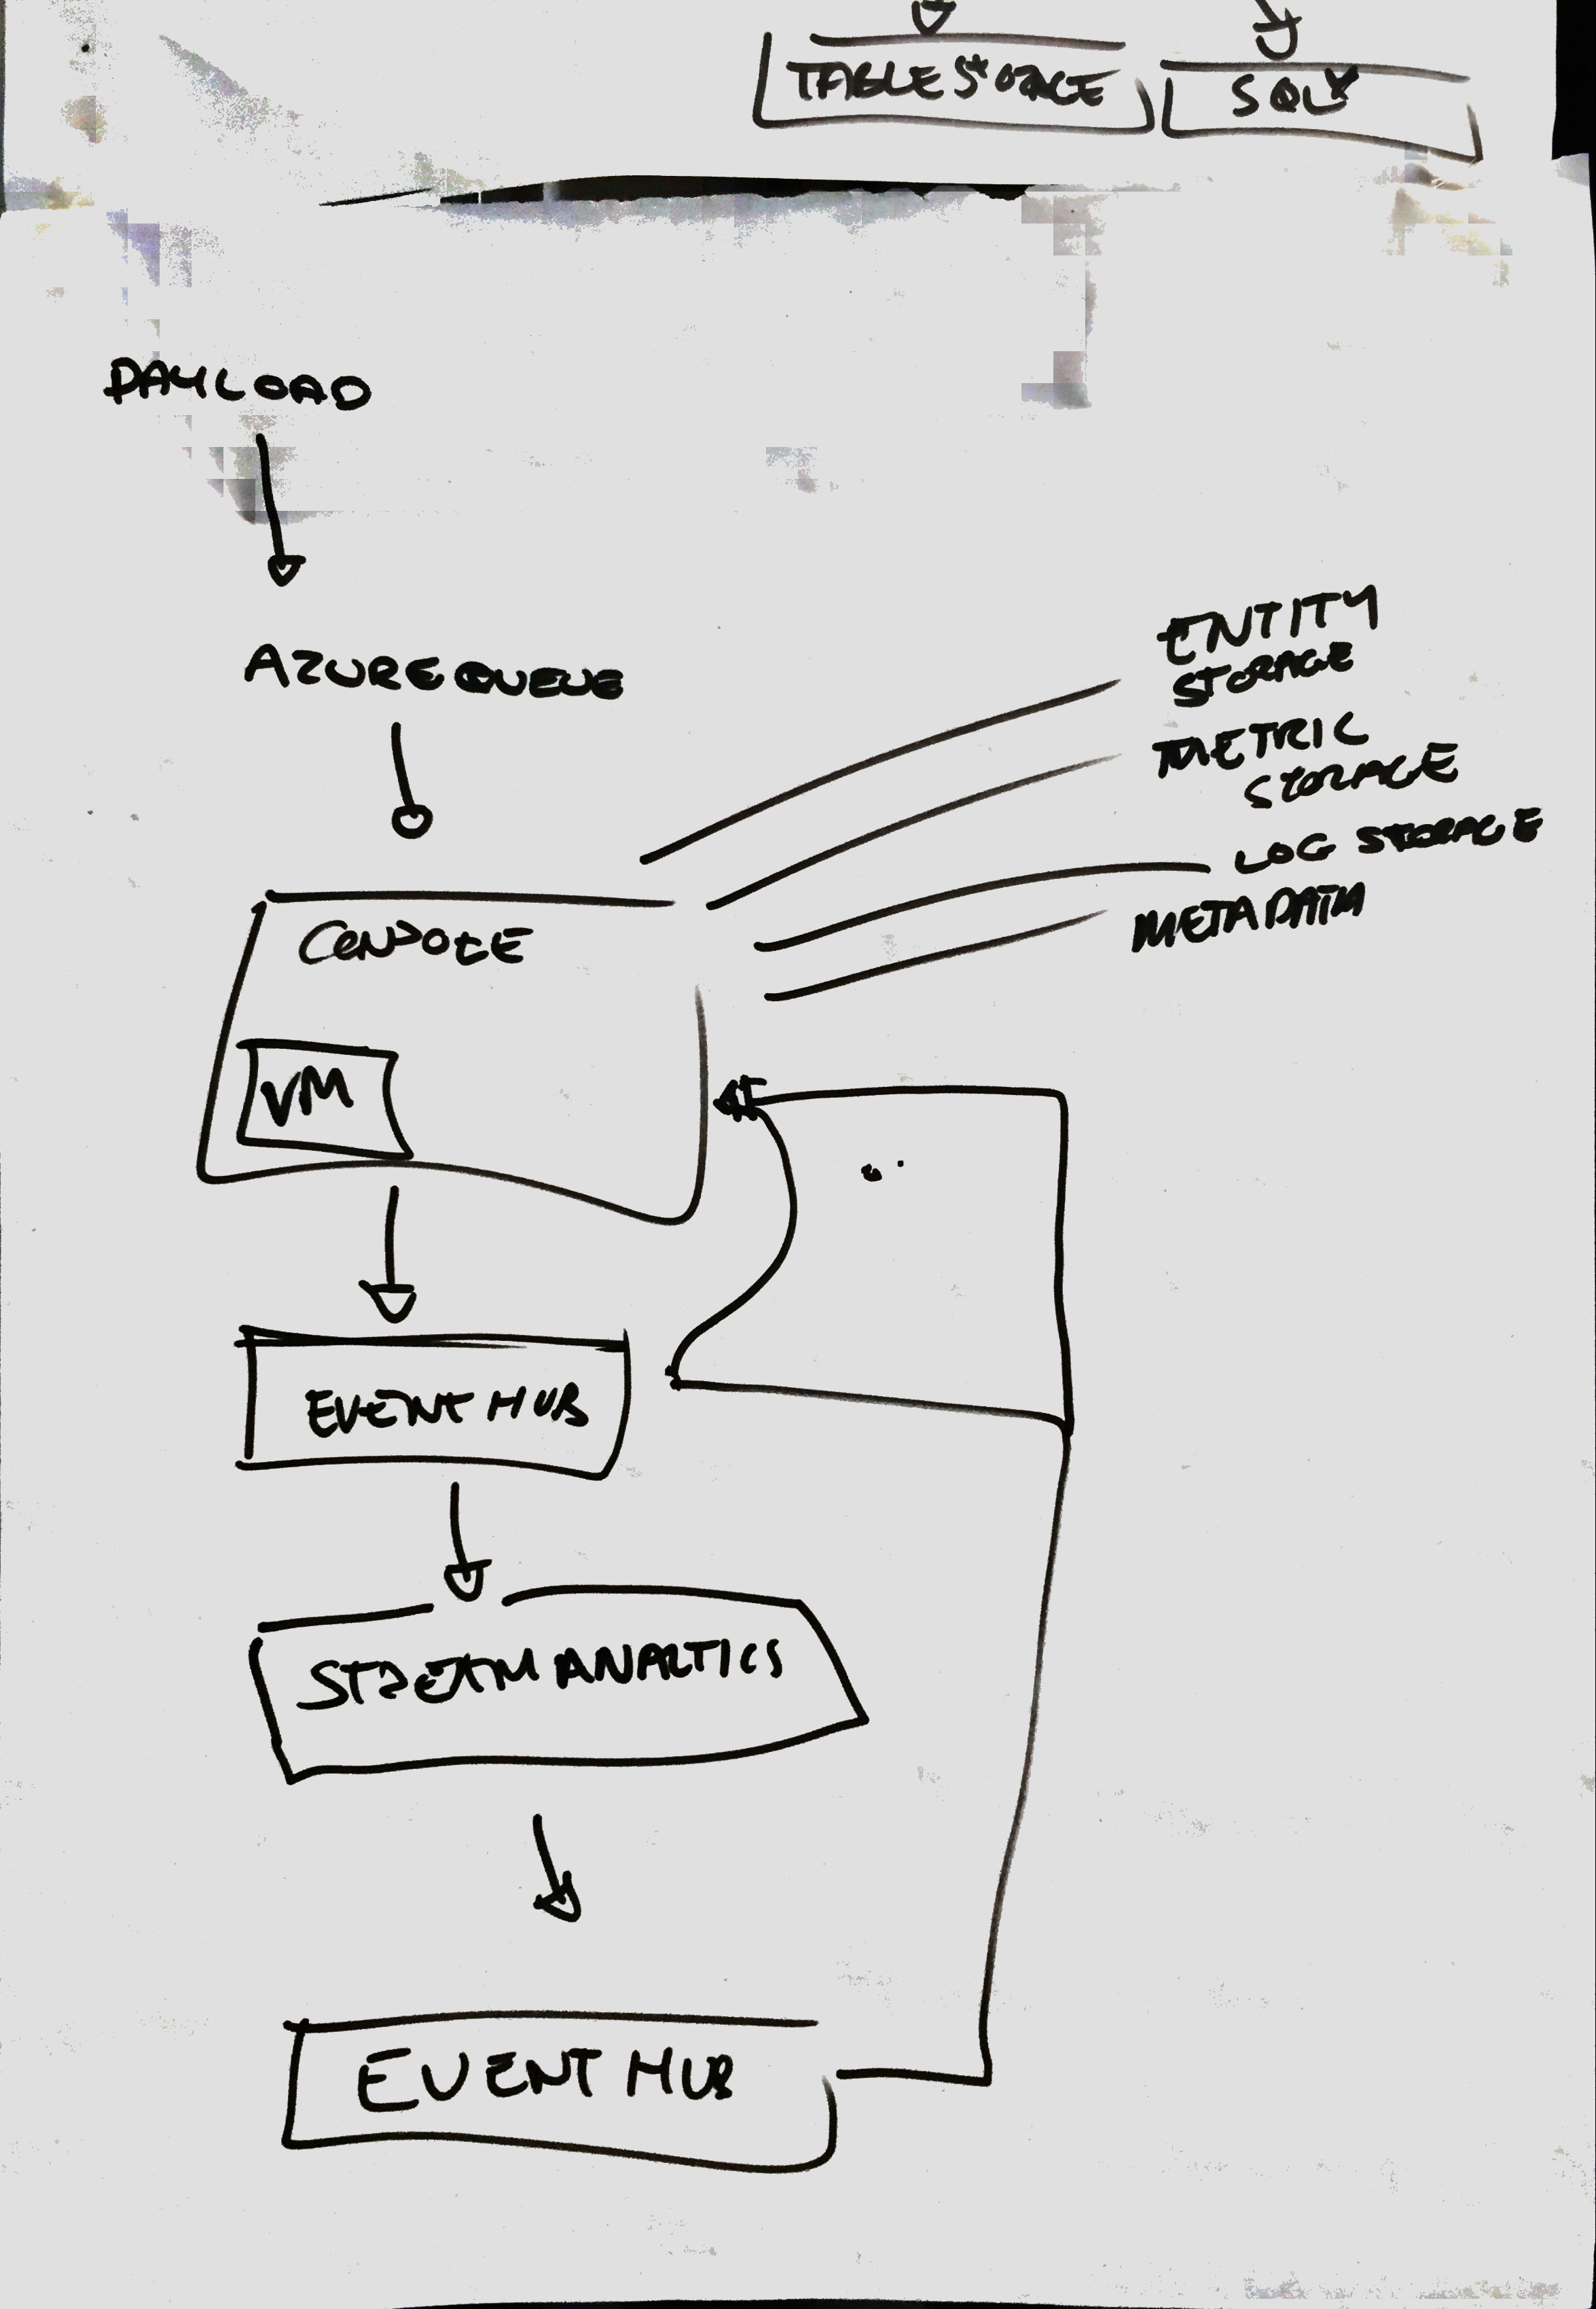 TABLE STORAGE
SQL
PAYLOAD
AZURE QUEUE
ENTITY
STORAGE
METRIC
STORAGE
LOG STORAGE
METADATA
CONSOLE
VM
EVENT HUB
STREAM ANALTICS
EVENT HUB